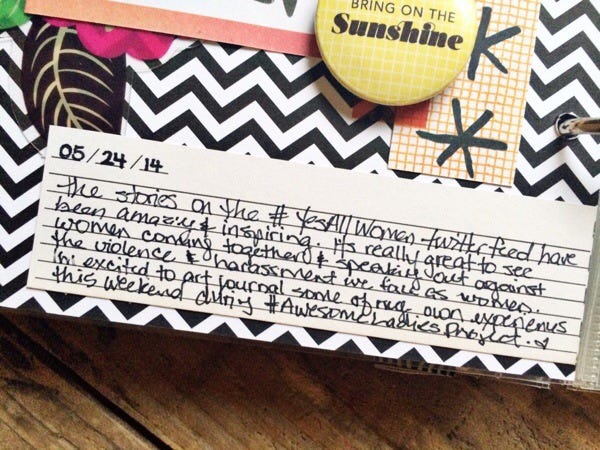 BRING ON THE
Sunshine
05/24/14
The stories on the #YesAllWomen twitter feed have
been amazing & inspiring. It's really great to see
women coming together & speaking out against
the violence & harassment we face as women.
I'm excited to art journal some of my own experiences
this weekend during #AwesomeLadiesProject.